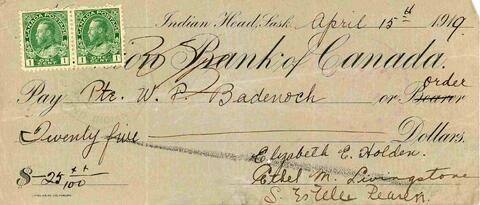 CANADA POSTAGE CANADA POSTAGE
1 CENT 1 1 CENT 1
Indian Head, Sask. April 15th 1919.
ion Bank of Canada.
order
Pay Ptc. W. P. Badenoch or Bearer
Twenty five Dollars.
$ 25 xx/100
Elizabeth E. Holden.
Ethel M. Livingstone
S. Estelle Pearen.